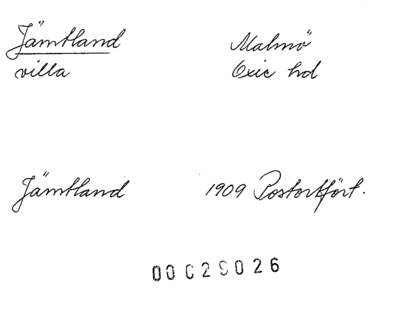 Jämtland Malmö
villa Oxie hd
Jämtland 1909 Postortfört.
00029026